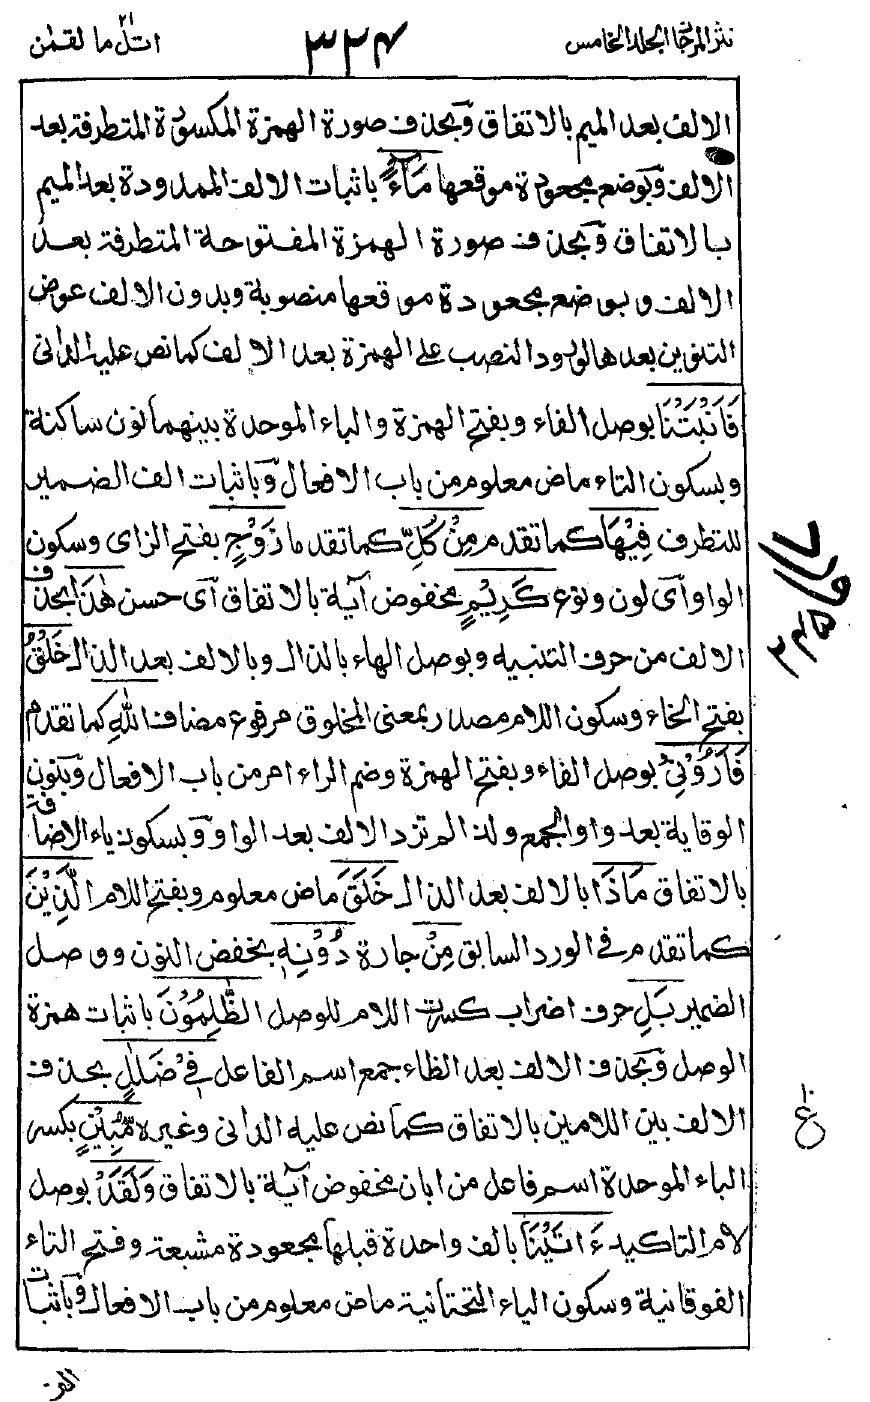 نثر المرجان الجلد الخامس
٣٢٤
اتل ما ٢١ لقمٰن
الالف بعد الميم بالاتفاق وبحذف صورة الهمزة المكسورة المتطرفة بعد
الالف وبوضع مجعودة موقعها مَآءً باثبات الالف الممدودة بعد الميم
بالاتفاق وبحذف صورة الهمزة المفتوحة المتطرفة بعد
الالف وبوضع مجعودة موقعها منصوبة وبدون الالف عوض
التنوين بعدها لورود النصب على الهمزة بعد الالف كما نص عليه الدانى
فَاَنْبَتْنَا بوصل الفاء وبفتح الهمزة والباء الموحدة بينهما نون ساكنة
وبسكون التاء ماض معلوم من باب الافعال وباثبات الف الضمير
للتطرف فِيْهَا كما تقدم مِنْ كُلِّ كما تقدما زَوْجٍ بفتح الزاى وسكون
الواو اى لون ونوع كَرِيْمٍ مخفوض آية بالاتفاق اى حسن هٰذَا بحذف
الالف من حرف التنبيه وبوصل الهاء بالذال وبالالف بعد الذال خَلْقُ
بفتح الخاء وسكون اللام مصدر بمعنى المخلوق مرفوع مضاف اللّٰهِ كما تقدم
فَاَرُوْنِىْ بوصل الفاء وبفتح الهمزة وضم الراء امر من باب الافعال وبنون
الوقاية بعد واو الجمع ولذا لم تزد الالف بعد الواو وبسكون ياء الاضافة
بالاتفاق مَاذَا بالالف بعد الذال خَلَقَ ماض معلوم وبفتح اللام الَّذِيْنَ
كما تقدم فى الورد السابق مِنْ جارة دُوْنِهٖ بخفض النون ووصل
الضمير بَلِ حرف اضراب كسرت اللام للوصل الظّٰلِمُوْنَ باثبات همزة
الوصل وبحذف الالف بعد الظاء جمع اسم الفاعل فِىْ ضَلٰلٍ بحذف
الالف بين اللامين بالاتفاق كما نص عليه الدانى وغيره مُّبِيْنٍ بكسر
الباء الموحدة اسم فاعل من ابان مخفوض آية بالاتفاق وَلَقَدْ بوصل
لام التاكيد ءَاتَيْنَا بالف واحدة قبلها مجعودة مشبعة وفتح التاء
الفوقانية وسكون الياء التحتانية ماض معلوم من باب الافعال وباثبات
١٠
ع
الف